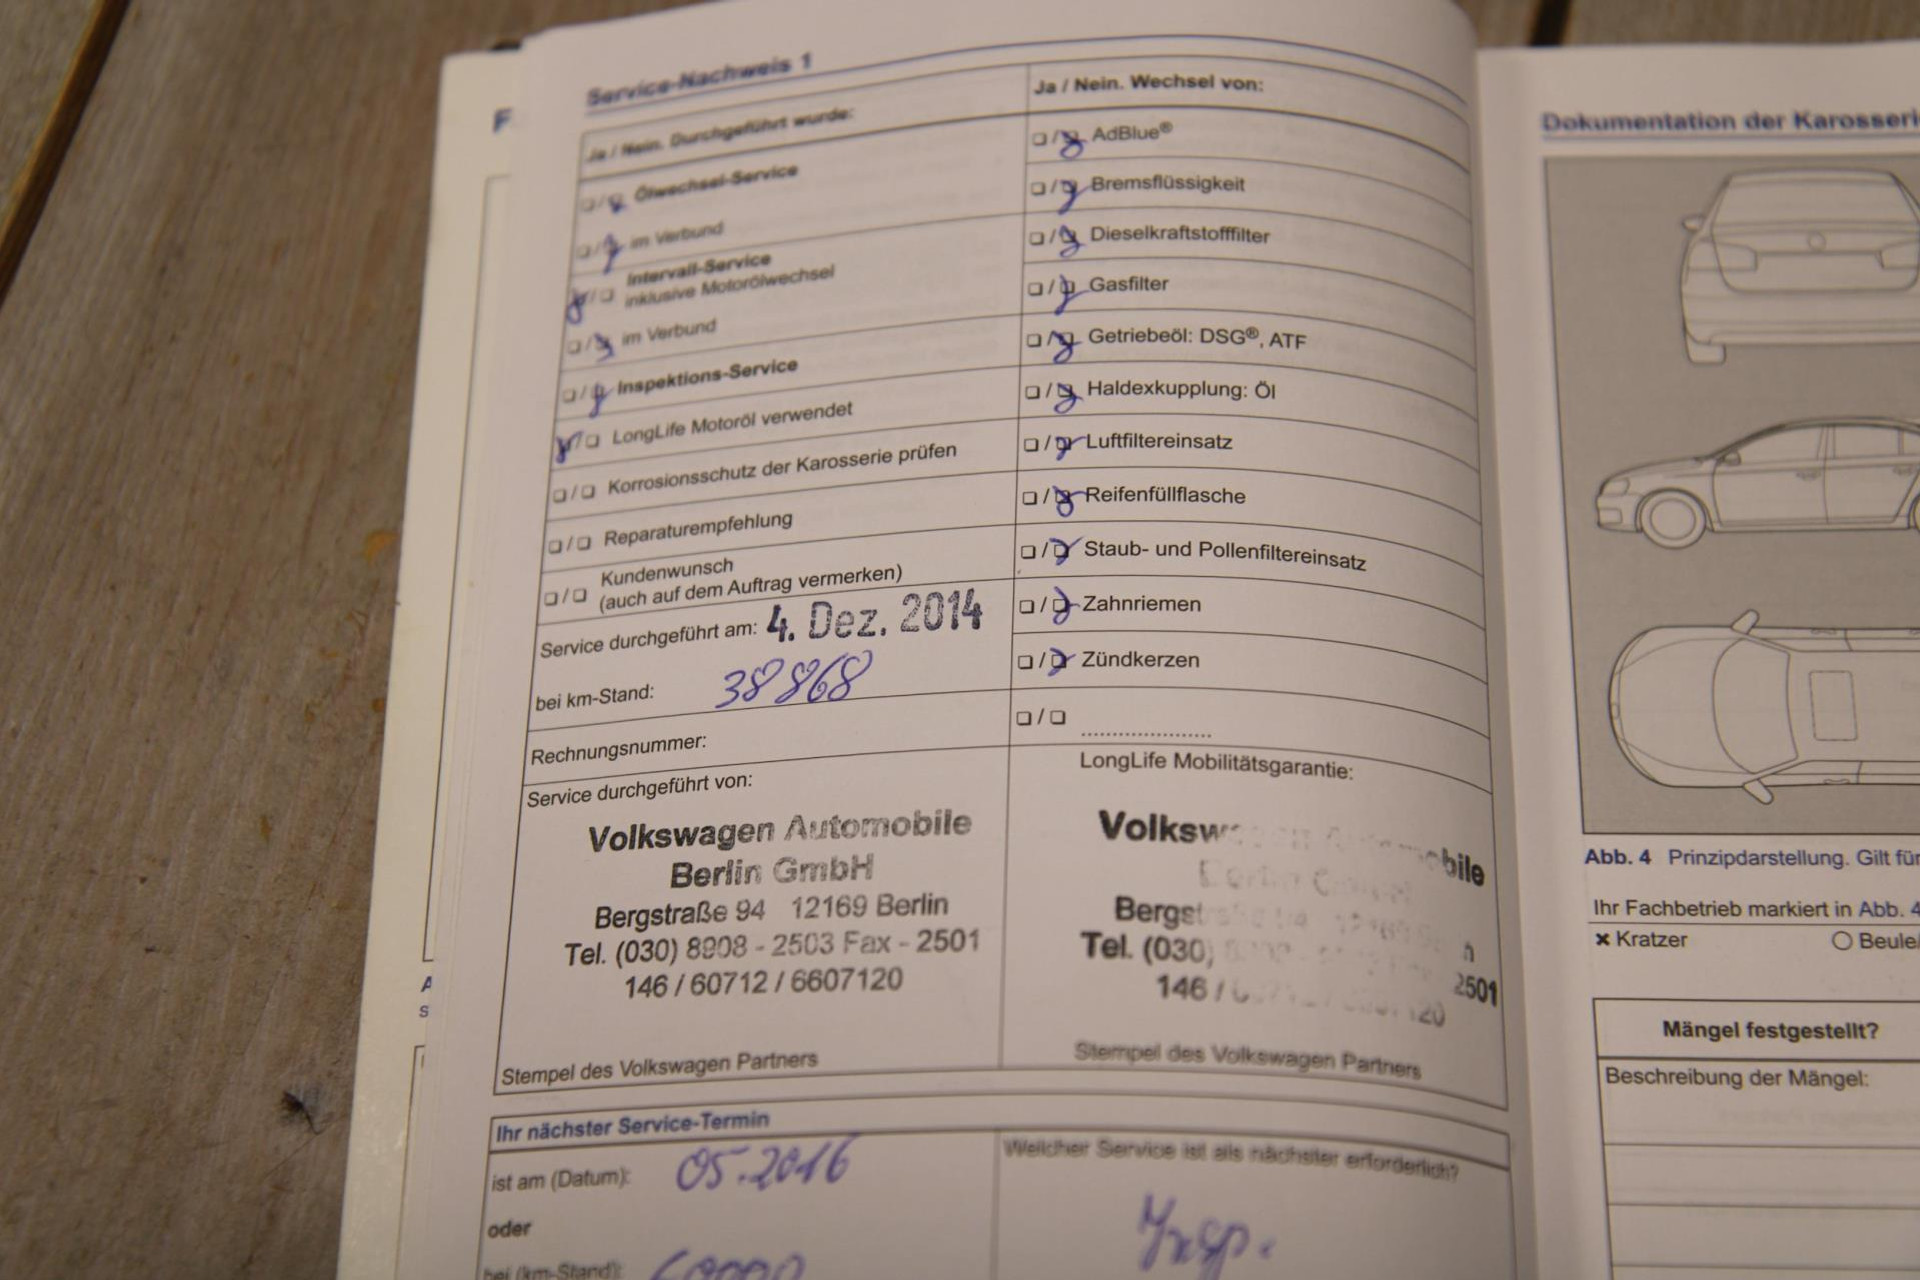 Service-Nachweis 1
Ja / Nein. Durchgeführt wurde:
Ölwechsel-Service
im Verbund
Intervall-Service
inklusive Motorölwechsel
im Verbund
Inspektions-Service
LongLife Motoröl verwendet
Korrosionsschutz der Karosserie prüfen
Reparaturempfehlung
Kundenwunsch
(auch auf dem Auftrag vermerken)
Service durchgeführt am: 4. Dez. 2014
bei km-Stand: 38868
Rechnungsnummer:
Service durchgeführt von:
Volkswagen Automobile
Berlin GmbH
Bergstraße 94 12169 Berlin
Tel. (030) 8908 - 2503 Fax - 2501
146 / 60712 / 6607120
Stempel des Volkswagen Partners
Ja / Nein. Wechsel von:
AdBlue®
Bremsflüssigkeit
Dieselkraftstofffilter
Gasfilter
Getriebeöl: DSG®, ATF
Haldexkupplung: Öl
Luftfiltereinsatz
Reifenfüllflasche
Staub- und Pollenfiltereinsatz
Zahnriemen
Zündkerzen
LongLife Mobilitätsgarantie:
Tel. (030)
2501
Stempel des Volkswagen Partners
Ihr nächster Service-Termin
ist am (Datum): 05.2016
oder
bei (km-Stand):
Welcher Service ist als nächster erforderlich?
Insp.
Dokumentation der Karosseri
Abb. 4 Prinzipdarstellung. Gilt für
Ihr Fachbetrieb markiert in Abb. 4
× Kratzer ○ Beule
Mängel festgestellt?
Beschreibung der Mängel: